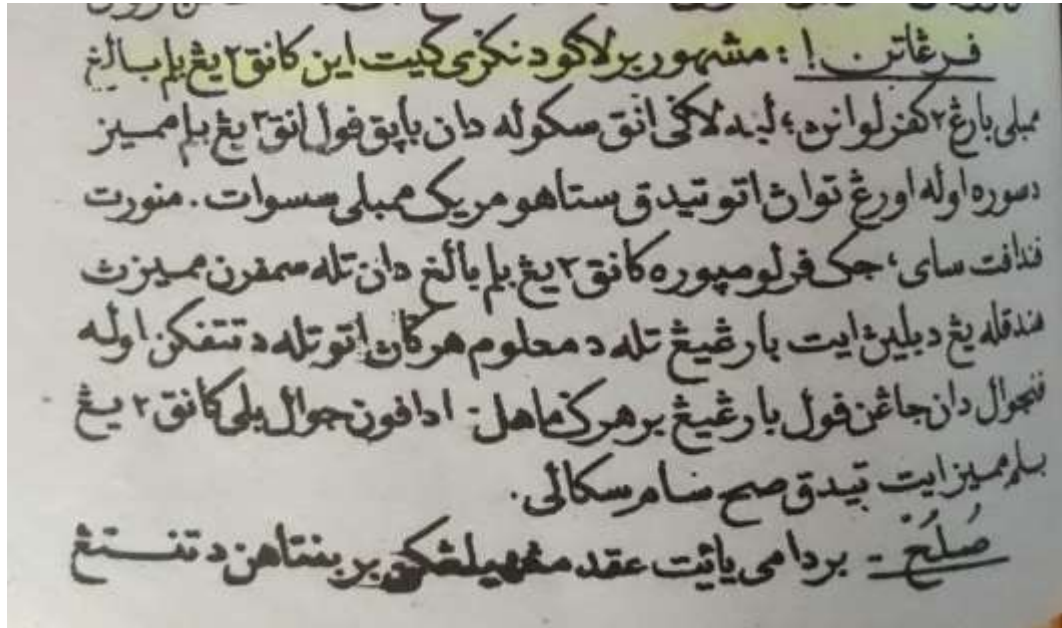 فرڠاتن ! : مشهور برلاكو دنكري كيت اين كانق٢ يڠ بلم بالغ
ممبلي بارڠ٢ كفرلوانڽ، ليبه لاݢي انق سكوله دان باپق ڤول انق٢ يڠ بلم مميز
دسوره اوله اورڠ توان اتو تيدق ستاهو مريك ممبلي سسوات. منورت
ڤندافت ساي، جك ڤرلو ميوره كانق٢ يڠ بلم بالغ دان تله سمڤرن مميزڽ
هندقله يڠ دبلين ايت بارڠيڠ تله دمعلوم هرݢاڽ اتو تله دتتفكن اوله
ڤنجوال دان جاڠن ڤول بارڠيڠ برهرݢ ماهل. ادافون جوال بلي كانق٢ يڠ
بلم مميز ايت تيدق صح سام سكالي.
صُلحْ - بردامي يائيت عقد مڠهيلڠكن بربنتاهن دتنتڠ